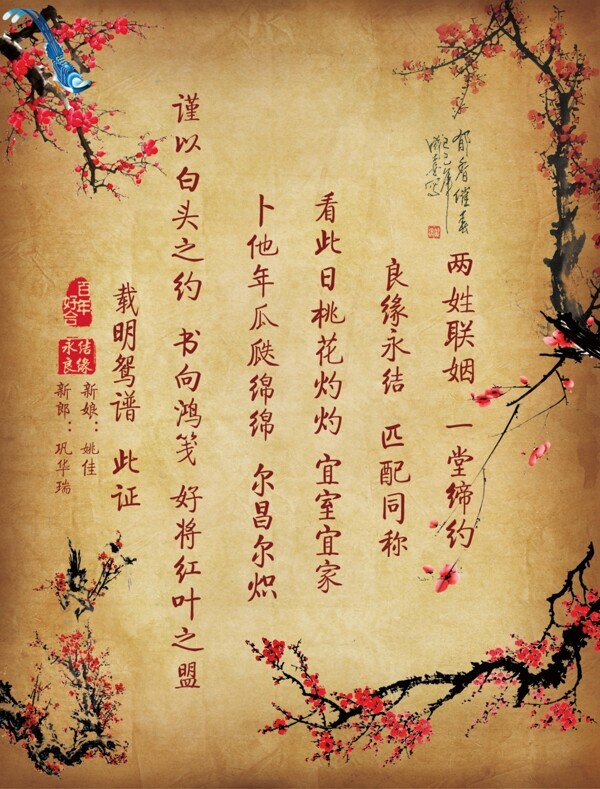 两姓联姻 一堂缔约
良缘永结 匹配同称
看此日桃花灼灼 宜室宜家
卜他年瓜瓞绵绵 尔昌尔炽
谨以白头之约 书向鸿笺 好将红叶之盟
载明鸳谱 此证
百年好合
永结良缘
新娘：姚佳
新郎：巩华瑞